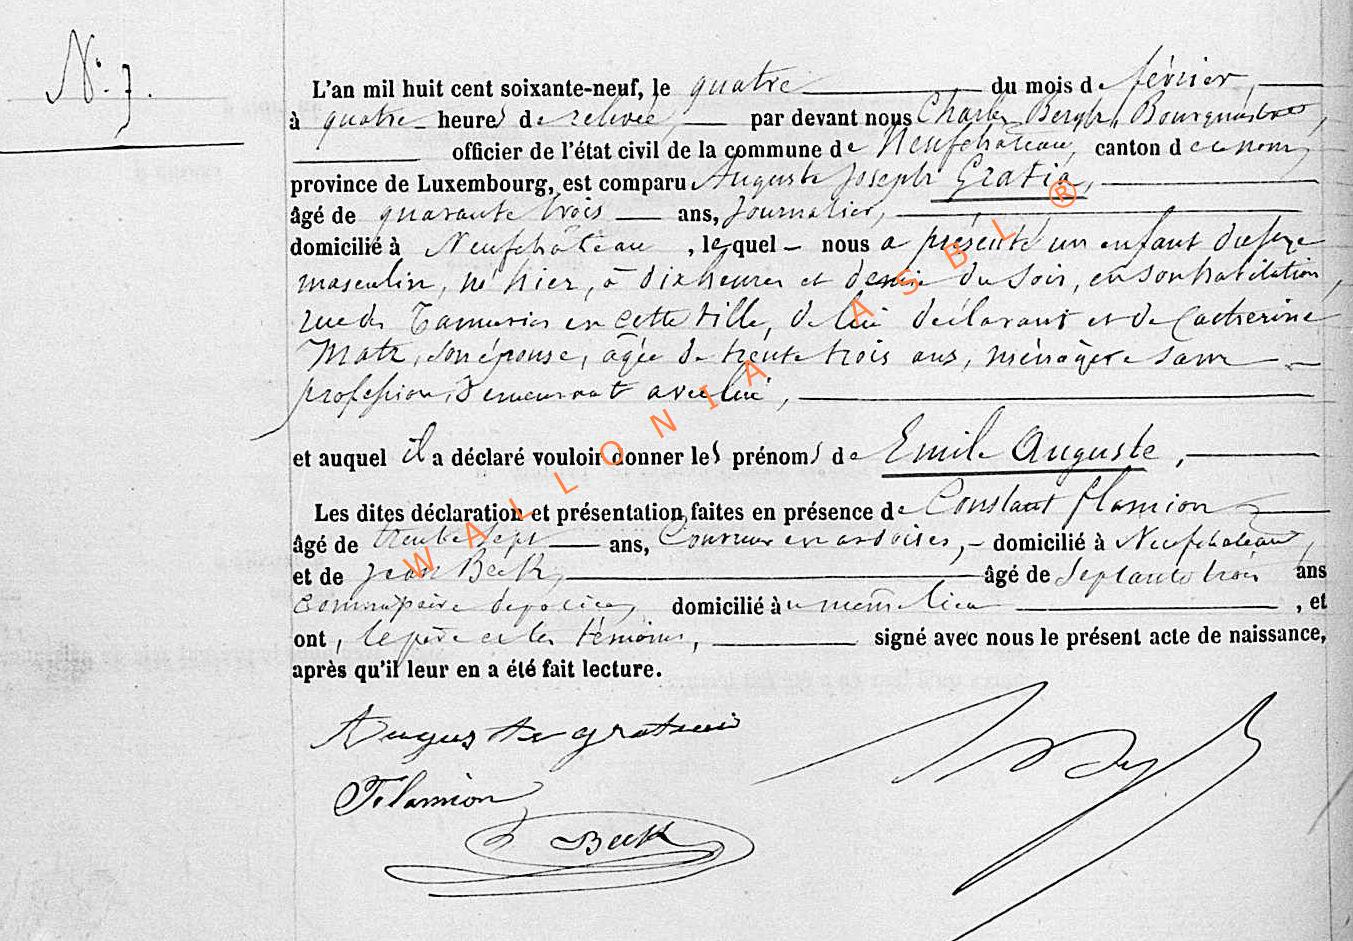 N° 7.
L'an mil huit cent soixante-neuf, le quatre du mois de février,
à quatre heures de relevée, par devant nous Charles Bergh, Bourgmestre,
officier de l'état civil de la commune de Neufchâteau, canton de ce nom,
province de Luxembourg, est comparu Auguste Joseph Gratia,
âgé de quarante trois ans, journalier,
domicilié à Neufchâteau, lequel nous a présenté un enfant du sexe
masculin, né hier, à dix heures et demie du soir, en son habitation,
rue des Tanneries en cette ville, de lui déclarant et de Catherine
Matz, son épouse, âgée de trente trois ans, ménagère sans
profession, demeurant avec lui,
et auquel il a déclaré vouloir donner les prénoms de Emile Auguste,
Les dites déclaration et présentation faites en présence de Constant Flamion
âgé de trente sept ans, Couvreur en ardoises, domicilié à Neufchateau,
et de Jean Beck, âgé de septante trois ans
commissaire de police, domicilié au même lieu, et
ont, le père et les témoins, signé avec nous le présent acte de naissance,
après qu'il leur en a été fait lecture.
Auguste gratia
Flamion
Beck
WALLONIA ASBL ®